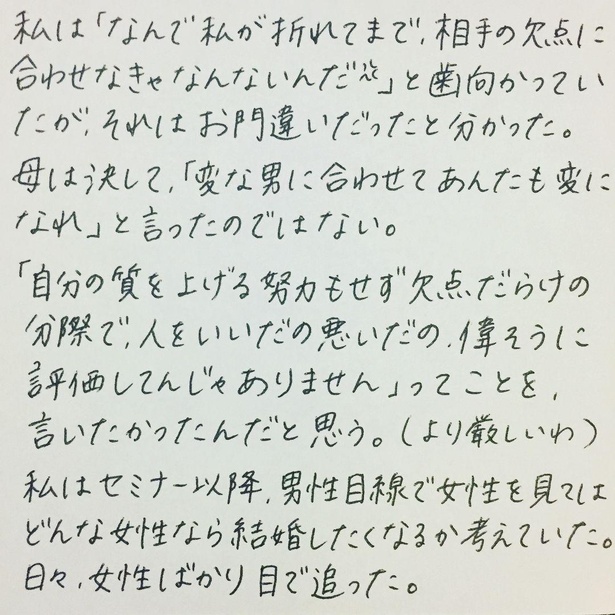 私は「なんで私が折れてまで、相手の欠点に
合わせなきゃなんないんだ」と歯向かってい
たが、それはお門違いだったと分かった。
母は決して、「変な男に合わせてあんたも変に
なれ」と言ったのではない。
「自分の質を上げる努力もせず欠点だらけの
分際で、人をいいだの悪いだの、偉そうに
評価してんじゃありません」ってことを、
言いたかったんだと思う。(より厳しいわ)
私はセミナー以降、男性目線で女性を見ては
どんな女性なら結婚したくなるか考えていた。
日々、女性ばかり目で追った。